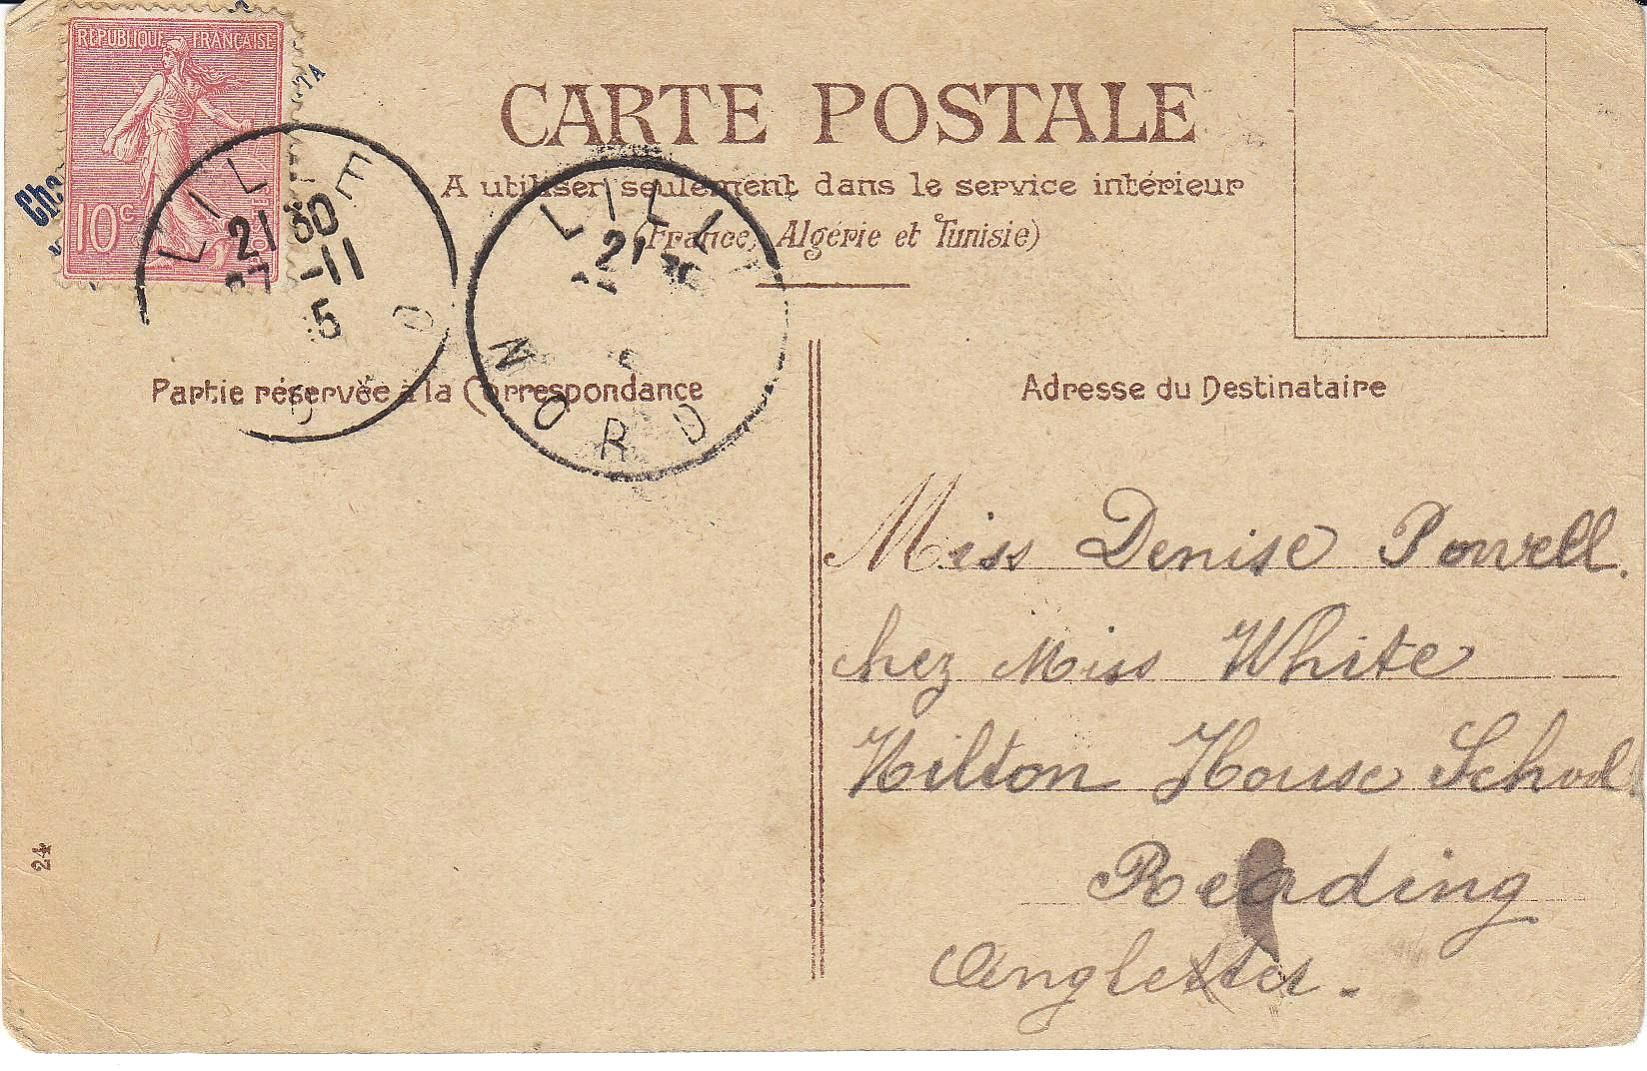 REPUBLIQUE FRANÇAISE
10c
POSTES
Che
TA
LILLE
21 30
27 -11
5
LILLE
21
NORD
CARTE POSTALE
A utiliser seulement dans le service intérieur
(France, Algérie et Tunisie)
Partie réservée à la Correspondance
Adresse du Destinataire
Miss Denise Powell.
chez Miss White
Hilton House School
Reading
Angleterre.
24